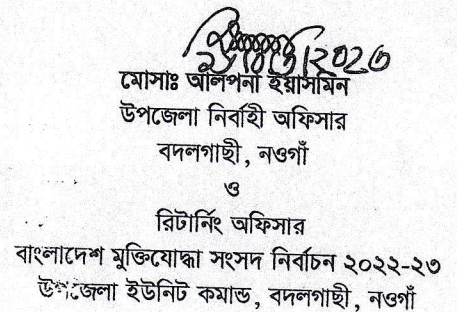 মোসাঃ আলপনা ইয়াসমিন
উপজেলা নির্বাহী অফিসার
বদলগাছী, নওগাঁ
ও
রিটার্নিং অফিসার
বাংলাদেশ মুক্তিযোদ্ধা সংসদ নির্বাচন ২০২২-২৩
উপজেলা ইউনিট কমান্ড, বদলগাছী, নওগাঁ